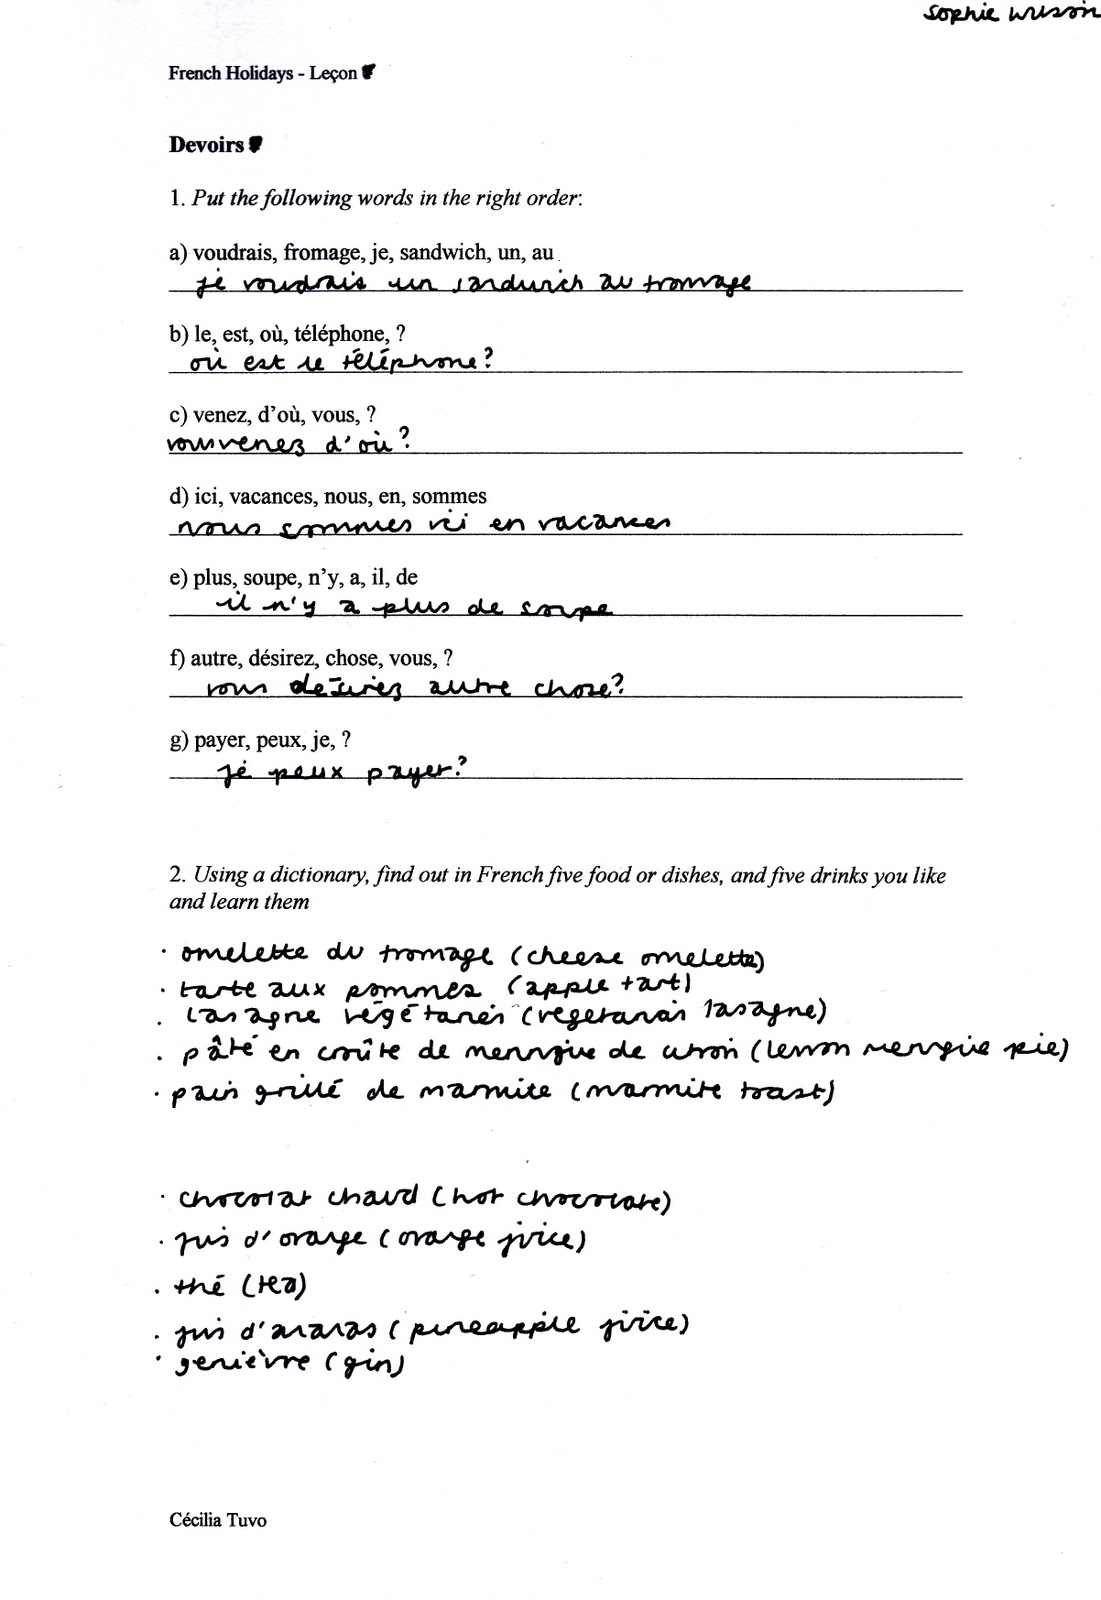 sophie wilson
French Holidays - Leçon
Devoirs
1. Put the following words in the right order:
a) voudrais, fromage, je, sandwich, un, au
je voudrais un sandwich au fromage
b) le, est, où, téléphone, ?
où est le téléphone?
c) venez, d'où, vous, ?
vous venez d'où?
d) ici, vacances, nous, en, sommes
nous sommes ici en vacances
e) plus, soupe, n'y, a, il, de
il n'y a plus de soupe
f) autre, désirez, chose, vous, ?
vous désirez autre chose?
g) payer, peux, je, ?
je peux payer?
2. Using a dictionary, find out in French five food or dishes, and five drinks you like
and learn them
· omelette du fromage (cheese omelette)
· tarte aux pommes (apple tart)
· lasagne végétariés (vegetarian lasagne)
· pâté en croûte de meringue de citron (lemon meringue pie)
· pain grillé de marmite (marmite toast)
· chocolat chaud (hot chocolate)
· jus d'orange (orange juice)
· thé (tea)
· jus d'ananas (pineapple juice)
· genièvre (gin)
Cécilia Tuvo